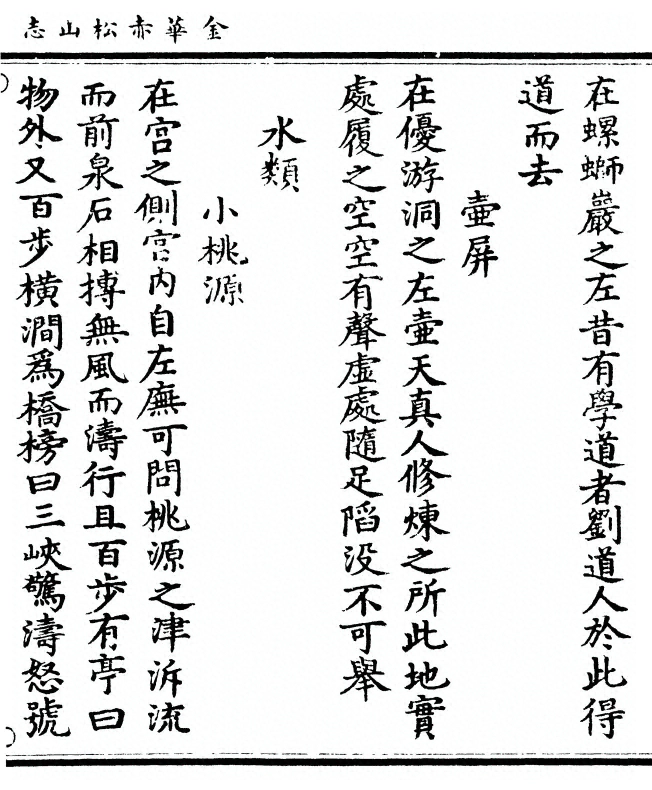 金華赤松山志
在螺螄巖之左昔有學道者劉道人於此得
道而去
壺屏
在優游洞之左壺天真人修煉之所此地實
處履之空空有聲虛處隨足陷没不可舉
水類
小桃源
在宮之側宮内自左廡可問桃源之津泝流
而前泉石相摶無風而濤行且百步有亭曰
物外又百步橫澗爲橋榜曰三峽驚濤怒號